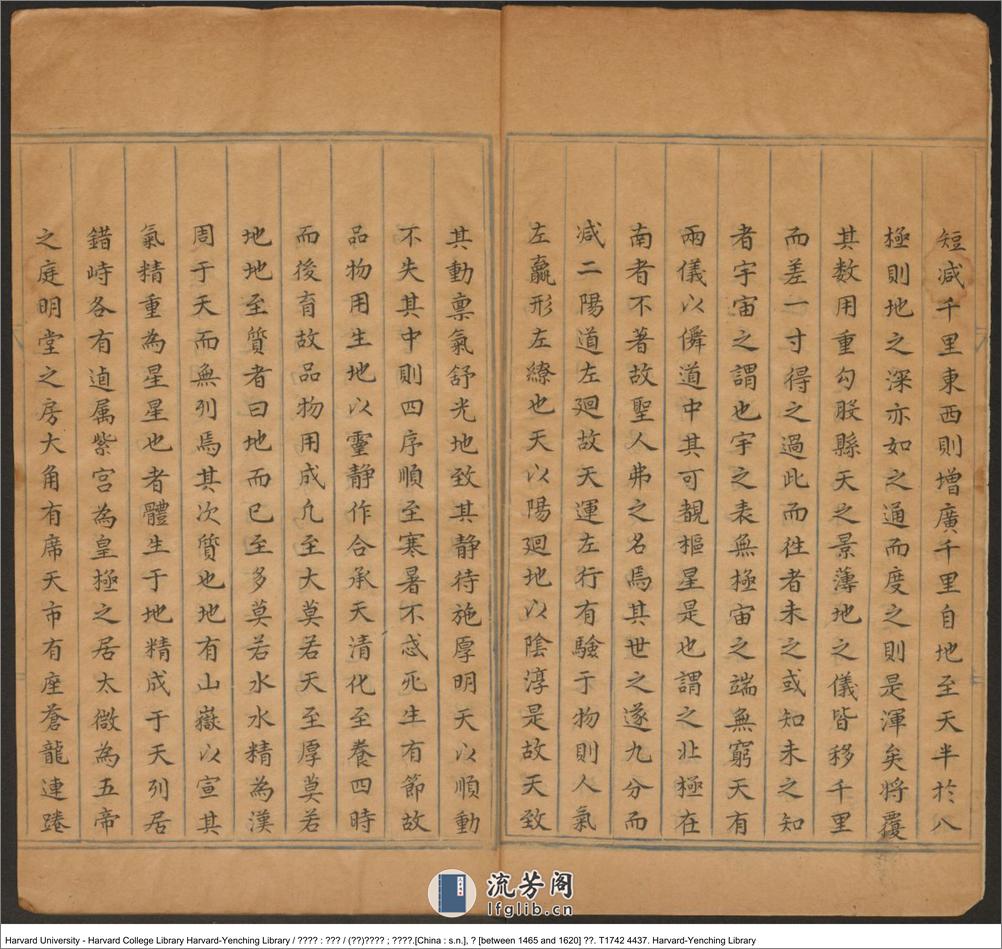 短减千里東西則增廣千里自地至天半於八
極則地之深亦如之通而度之則是渾矣將覆
其数用重勾股縣天之景薄地之儀皆移千里
而差一寸得之過此而徃者未之或知未之知
者宇宙之謂也宇之表無極宙之端無窮天有
兩儀以儛道中其可覩樞星是也謂之北極在
南者不著故聖人弗之名焉其世之遂九分而
减二陽道左廻故天運左行有驗于物則人氣
左羸形左繚也天以陽廻地以陰淳是故天致
其動禀氣舒光地致其静待施厚明天以順動
不失其中則四序順至寒暑不忒死生有節故
品物用生地以靈静作合承天清化至養四時
而後育故品物用成凢至大莫若天至厚莫若
地地至質者曰地而已至多莫若水水精為漢
周于天而無列焉其次質也地有山嶽以宣其
氣精重為星星也者體生于地精成于天列居
錯峙各有逌属紫宫為皇極之居太微為五帝
之庭明堂之房大角有席天市有座蒼龍連踡
流芳阁
lfglib.cn
Harvard University - Harvard College Library Harvard-Yenching Library / ???? : ??? / (??)???? ; ????.[China : s.n.], ? [between 1465 and 1620] ??. T1742 4437. Harvard-Yenching Library